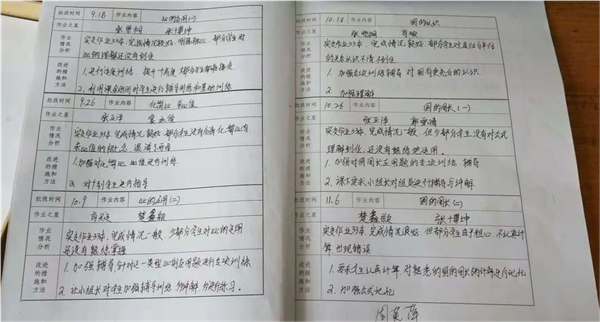 批改时间 9.18 作业内容 比的应用(一)
作业之星 张梦柯 张梦坤
作业情况分析
实交作业33本,完成情况较好,
部分学生对
比的理解还没有到位
改进的措施和方法
2. 利用课余时间对学生进行辅导训练和基础训练
批改时间 9.26 作业内容 化简比 求比值
作业之星 张玉泽
作业情况分析
实交作业33本,完成情况较好
部分学生没有分清化简比与
求比值的概念
改进的措施和方法
1. 加强对化简比、比值是的训练
2. 对个别学生进行指导
批改时间 10.9 作业内容 比的应用(二)
作业之星 楚鑫颖
作业情况分析
实交作业33本,完成情况一般,少部分学生对比的应用
还没有熟练掌握
改进的措施和方法
1. 加强辅导 针对这一类型比的应用题进行专项训练
2. 让小组长对学生加强辅导训练 多讲解 多进行练习。
批改时间 10.18 作业内容 圆的认识
作业之星
作业情况分析
实交作业33本,完成情况较好 部分学生对直径与半径
的关系认识不清 不到位
改进的措施和方法
1. 加强专项训练辅导 对圆有更充分的认识。
2. 加强理解
批改时间 10.26 作业内容 圆的周长(一)
作业之星 张玉泽
作业情况分析
实交作业33本,完成情况一般,但部分学生没有对公式
理解到位,还没有熟练地运用。
改进的措施和方法
1. 加强对周长应用题的专项训练 辅导
2. 课下要求小组长对组员进行辅导与讲解
批改时间 11.6 作业内容 圆的周长(二)
作业之星 楚鑫颖 张梦坤
作业情况分析
实交作业33本,完成情况良好 但部分学生由于粗心,不认真计
算出现错误
改进的措施和方法
1. 要求学生认真计算 对熟悉的圆的周长的计算进行记忆
2. 加强公式记忆